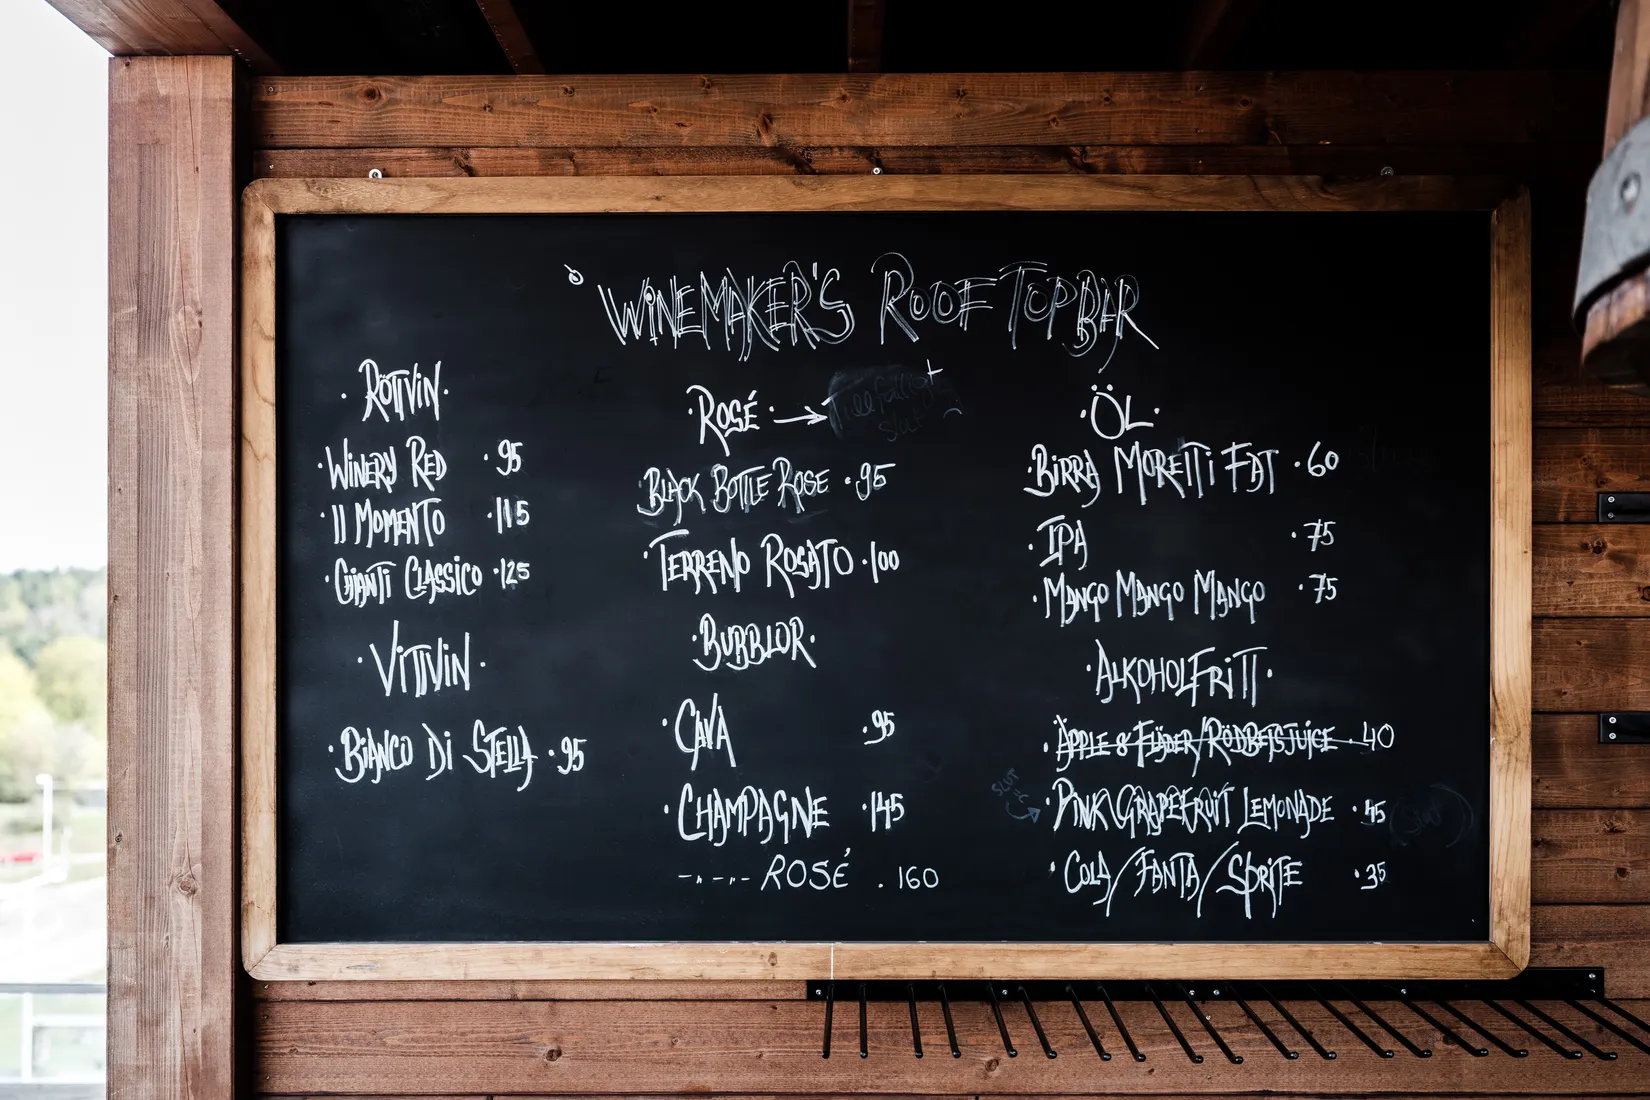 WINEMAKER'S ROOFTOPBAR
· RÖTTVIN ·
· WINERY RED · 95
· Il MOMENTO · 115
· CHIANTI CLASSICO · 125
· VITTVIN ·
· BIANCO DI STELLA · 95
· ROSÉ · → Tillfälligt slut
· BLACK BOTTLE ROSE · 95
· TERRENO ROSATO · 100
· BUBBLOR ·
· CAVA · 95
· CHAMPAGNE · 145
-"-"- ROSÉ . 160
· ÖL ·
· BIRRA MORETTI FAT · 60
· IPA · 75
· MANGO MANGO MANGO · 75
· ALKOHOLFRITT ·
· ÄPPLE & FLÄDER/RÖDBETSJUICE · 40
SLUT
· PINK GRAPEFRUIT LEMONADE · 45 (slut)
· COLA/FANTA/SPRITE · 35